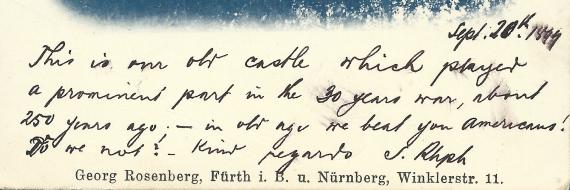 Sept. 20th. 1899
This is our old castle which played
a prominent part in the 30 years war, about
250 years ago; – in old age we beat you Americans!
Do we not? – Kind regards S.
Georg Rosenberg, Fürth i. B. u. Nürnberg, Winklerstr. 11.